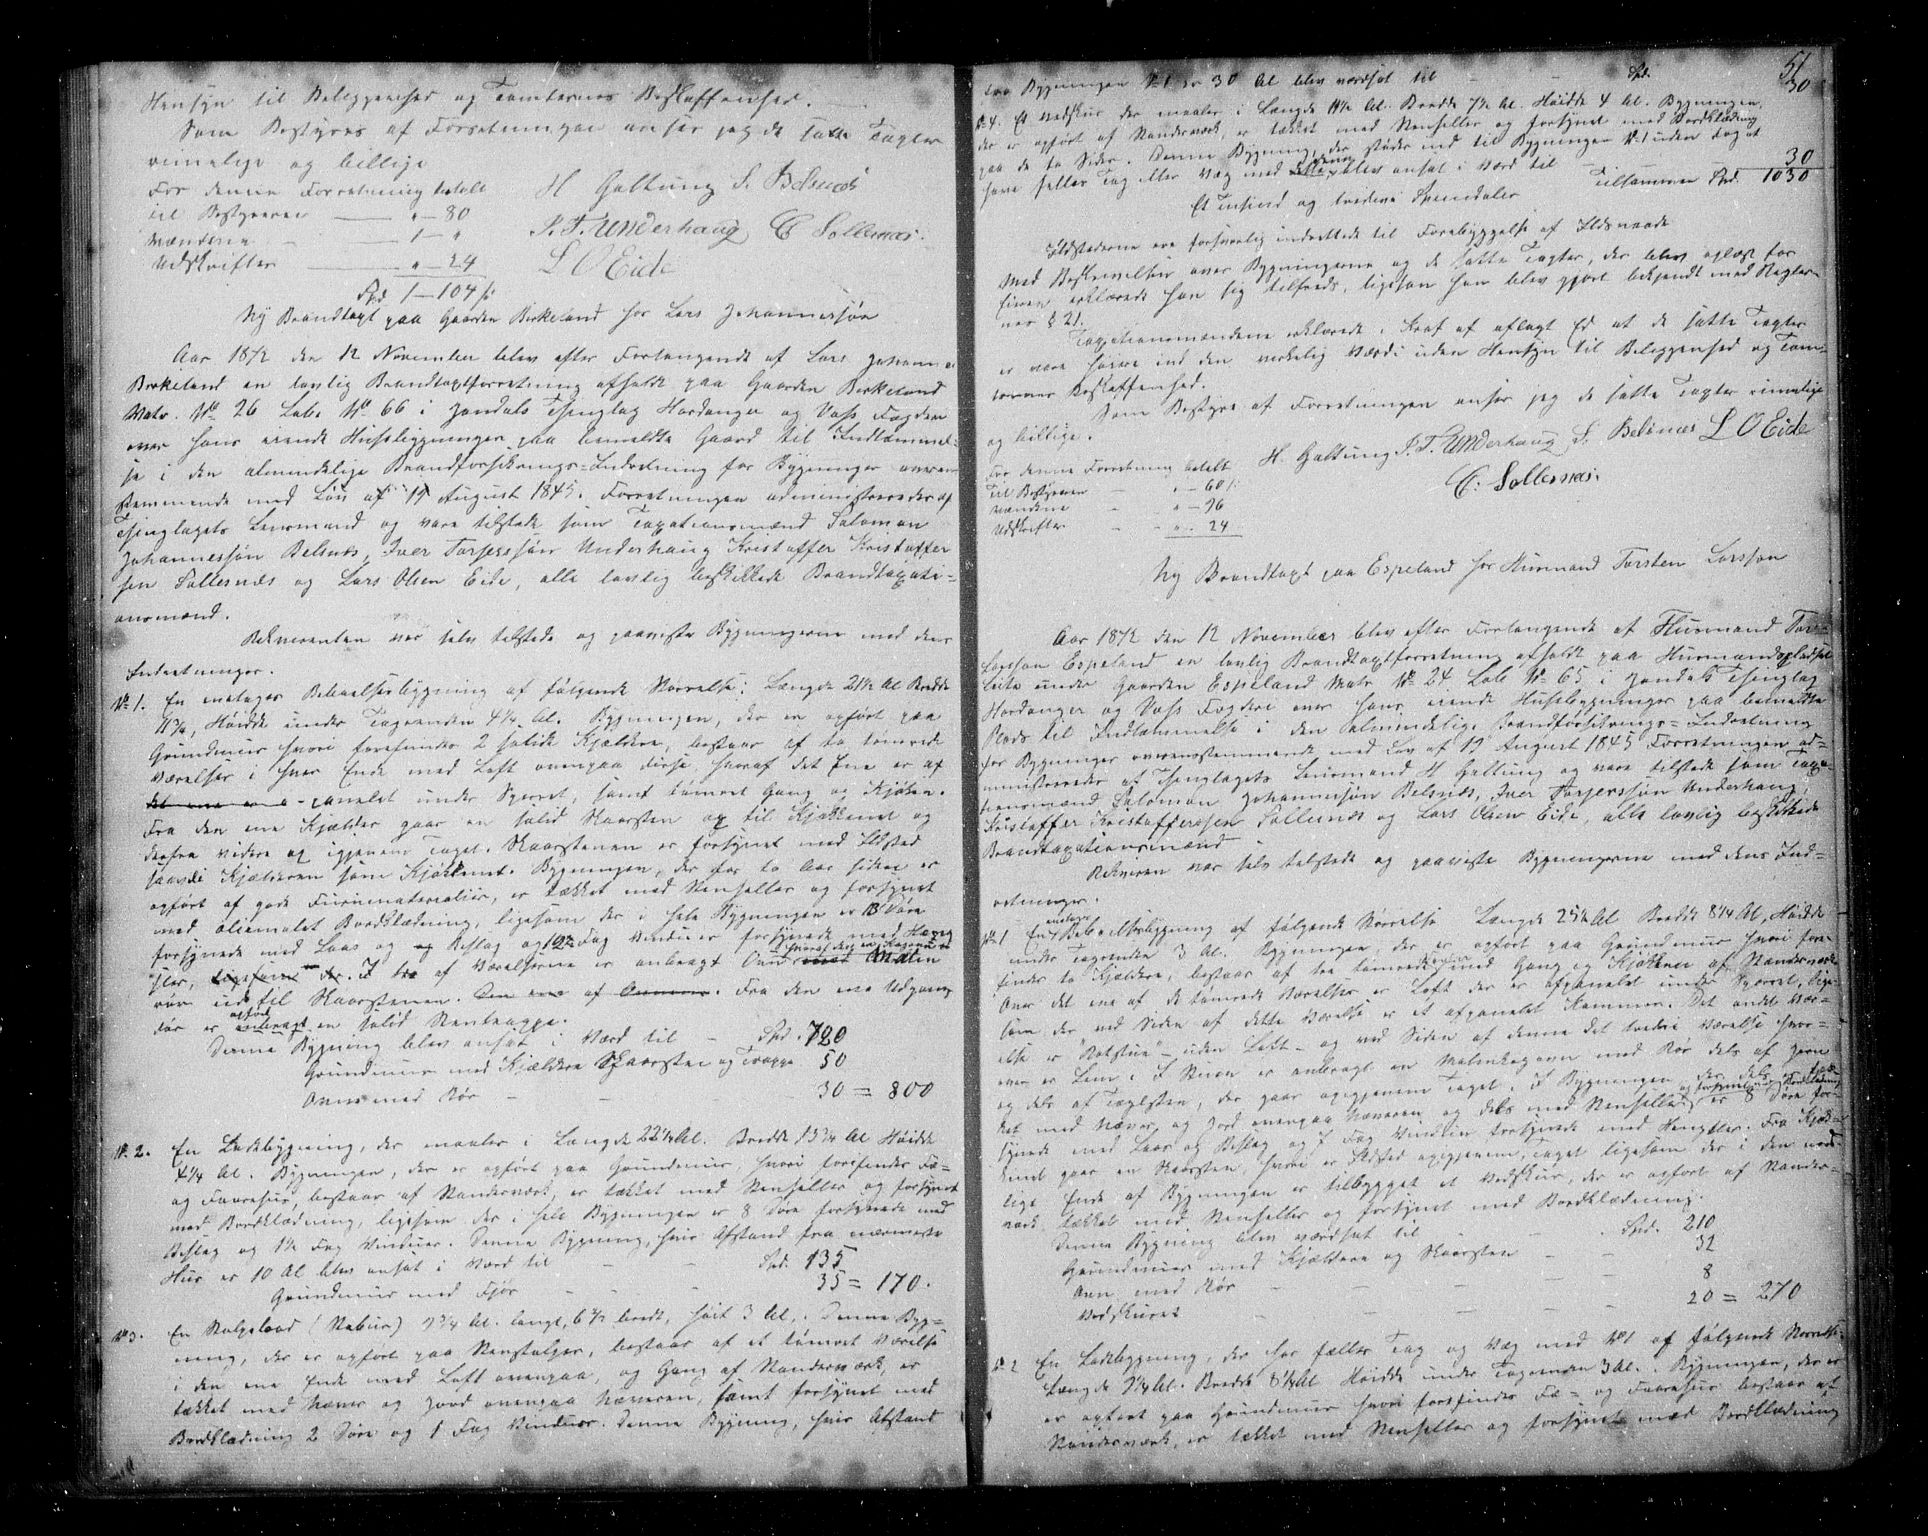 Hensyn til Beliggenhed og Tomternes Beskaffenhed.
Som Bestyrer af Forretningen anser jeg de satte Taxter
rimelige og billige
For denne Forretning betalt
H Galtung S. Belsnæs
til Bestyreren — " — 80
I. T. Underhaug C Sollesnæs.
Mændene — 1 — "
Udskrifter — " — 24
L O Eide
Spd 1 — 104 ß
Ny Brandtaxt paa Gaarden Birkeland for Lars Johannessøn
Aar 1872 den 12 November blev efter Forlangende af Lars Johanne
Birkeland en lovlig Brandtaxtforretning afholdt paa Gaarden Birkeland
Matr. No 26 Løb. No 66 i Jondals Thinglag Hardanger og Voss Fogderi
over hans eiende Husebygninger paa bemeldte Gaard til Indlemmel-
se i den almindelige Brandforsikrings-Indretning for Bygninger overens-
stemmende med Lov af 19 August 1845. Forretningen administreredes af
Thinglagets Lensmand og vare tilstede som Taxationsmænd Salomon
Johannessøn Belsnæs, Iver Torjerssøn Underhaug Kristoffer Kristoffer
sen Sollesnæs og Lars Olsen Eide, alle lovlig beskikkede Brandtaxati-
onsmænd.
Rekvirenten var selv tilstede og paaviste Bygningerne med dens
Indretninger.
No 1. En etages Beboelsesbygning af følgende Størrelse: Længde 21½ Al Bredde
11¾, Høide under Tagrenden 4¼ Al. Bygningen, der er opført paa
Grundmur hvori forefindes 2 solide Kjældere, bestaar af to tømrede
Værelser i hver Ende med Loft ovenpaa disse, hvoraf det Ene er af
panelet under Sperret, samt tømret Gang og Kjøken.
Fra den ene Kjælder gaar en solid Skorsten op til Kjøkkenet og
derfra videre op igjennem Taget. Skorstenen er forsynet med Ildsted
saavel i Kjælderen som Kjøkkenet. Bygningen, der for to Aar siden er
opført af gode Furumaterialier, er tækket med Stenheller og forsynet
med oliemalet Bordklædning, ligesom der i hele Bygningen er 13 Døre
forsynede med Laas og Beslag og 12 Fag Vinduer forsynede med Heng
sler, I to af Værelserne er anbragt Ovn
rør ind til Skorstenen. Fra den ene Udgangs
dør er opført en solid Stentrappe.
Denne Bygning blev ansat i Værd til — Spd. 720
Grundmur med Kjældere Skorsten og Trappe 50
Ovn med Rør — — 30 = 800
No 2. En Ladebygning, der maaler i Længde 22¼ Al. Bredde 13¾ Al Høide
4¼ Al. Bygningen, der er opført paa Grundmur, hvori forefindes Fæ-
og Faarehus, bestaar af Standerværk, er tækket med Stenheller og forsynet
med Bordklædning, ligesom der i hele Bygningen er 8 Døre forsynede med
Beslag og 1½ Fag Vinduer. Denne Bygning, hvis Afstand fra nærmeste
Hus er 10 Al blev ansat i Værd til — — Spd. 135
Grundmur med Fjøs — — 35 = 170.
No 3. En Stolpebod (Stabur) 7¾ Al. langt, 6½ bredt, høit 3 Al. Denne Byg-
ning, der er opført paa Stenstolper, bestaar af et tømret Værelse
i den ene Ende med Loft ovenpaa, og Gang af Standerværk, er
tækket med Næver og Jord ovenpaa Næveren, samt forsynet med
Bordklædning 2 Døre og 1 Fag Vinduer. Denne Bygning, hvis Afstand
51
fra Bygningen No 1 er 30 Al blev værdsat til — — Spd. 30
No 4. Et Vedskur der maaler i Længde 11½ Al. Bredde 7½ Al. Høide 4 Al. Bygningen,
der er opført af Standerværk, er tækket med Stenheller og forsynet med Bordklædning
paa de to Sider. Denne Bygning, der støder ind til Bygningen No 1 uden dog at
have fælles Tag eller Væg med blev ansat i Værd til 30
Tilsammen Spd. 1030
Et Tusind og tredive Speciedaler
Ildstederne ere forsvarlig indrettede til Forebyggelse af Ildsvaade
Med Beskrivelsen over Bygningerne og de satte Taxter, der blev oplæst for
Eieren erklærede han sig tilfreds, ligesom han blev gjort bekjendt med Regler-
nes § 21.
Taxationsmændene erklærede i Kraft af aflagt Ed at de satte Taxter
er vore høiere end den virkelig Værdi uden Hensyn til Beliggenhed og Tom-
ternes Beskaffenhed.
Som Bestyrer af Forretningen anser jeg de satte Taxter rimelige
og billige.
H. Galtung I. T. Underhaug S. Belsnæs L O Eide
For denne Forretning betalt
C. Sollesnæs.
Til Bestyreren — " — 60 ß
Mændene — " — 96
Udskrifter — " — 24
Ny Brandtaxt paa Espeland for Husmand Torsten Larssøn
Aar 1872 den 12 November blev efter Forlangende af Husmand Tors-
Larssøn Espeland en lovlig Brandtaxtforretning afholdt paa Husmandspladsen
Leite under Gaarden Espeland Matr. No 24 Løb No 65 i Jondals Thinglag
Hardanger og Voss Fogderi over hans eiende Husebygninger paa bemeldte
Plads til Indlemmelse i den almindelige Brandforsikrings-Indretning
for Bygninger overensstemmende med Lov af 19 August 1845 Forretningen ad-
ministreredes af Thinglagets Lensmand H Galtung og vare tilstede som Taxa-
tionsmænd Salomon Johannessøn Belsnæs, Iver Torjerssøn Underhaug,
Kristoffer Kristofferssøn Sollesnæs og Lars Olsen Eide, alle lovlig beskikkede
Brandtaxationsmænd
Rekvirenten var selv tilstede og paaviste Bygningerne med dens Ind-
retninger.
No 1 En etages Beboelsesbygning af følgende Størrelse Længde 25½ Al Bredde 8¼ Al, Høide
under Tagrenden 3 Al. Bygningen, der er opført paa Grundmur hvori fore-
findes to Kjældere, bestaar af tre tømrede med Gang og Kjøkken af Standerværk.
Over det ene af de tømrede Værelser er Loft der er afpanelet under Sperret, lige-
som der ved Siden af dette Værelse er et afpanelet Kammer. Det andet Vær-
else er "Røkstue" uden Loft og ved Siden af denne det tredie Værelse hvor-
over er Lem. I Stuen er anbragt en Malmkogeovn med Rør dels af Jern
og dels af Teglsten, der gaar opigjennem Taget. I Bygningen der dels er tæk-
ket med Næver og Jord ovenpaa Næveren og dels med Stenheller og forsynet med Bordklædning er 8 Døre for-
synede med Laas og Beslag og 7 Fag Vinduer forsynede med Hengsler. Fra Kjøk-
kenet gaar en Skorsten, hvori er Ildsted opigjennem Taget ligesom der i den nord-
lige Ende af Bygningen er tilbygget et Vedskur, der er opført af Stander-
værk, tækket med Stenheller og forsynet med Bordklædning.
Denne Bygning blev værdsat til — — Spd. 210
Grundmur med 2 Kjældere og Skorsten — — 32
Ovn med Rør — — 8
Vedskuret — — 20 = 270
No 2 En Ladebygning, der har fælles Tag og Væg med No 1 af følgende Størrelse.
Længde 9¼ Al. Bredde 8¼ Al Høide under Tagrenden 3 Al. Bygningen, der er
er opført paa Grundmur hvori forefindes Fæ- og Faarehus bestaar af
Standerværk, er tækket med Stenheller og forsynet med Bordklædning